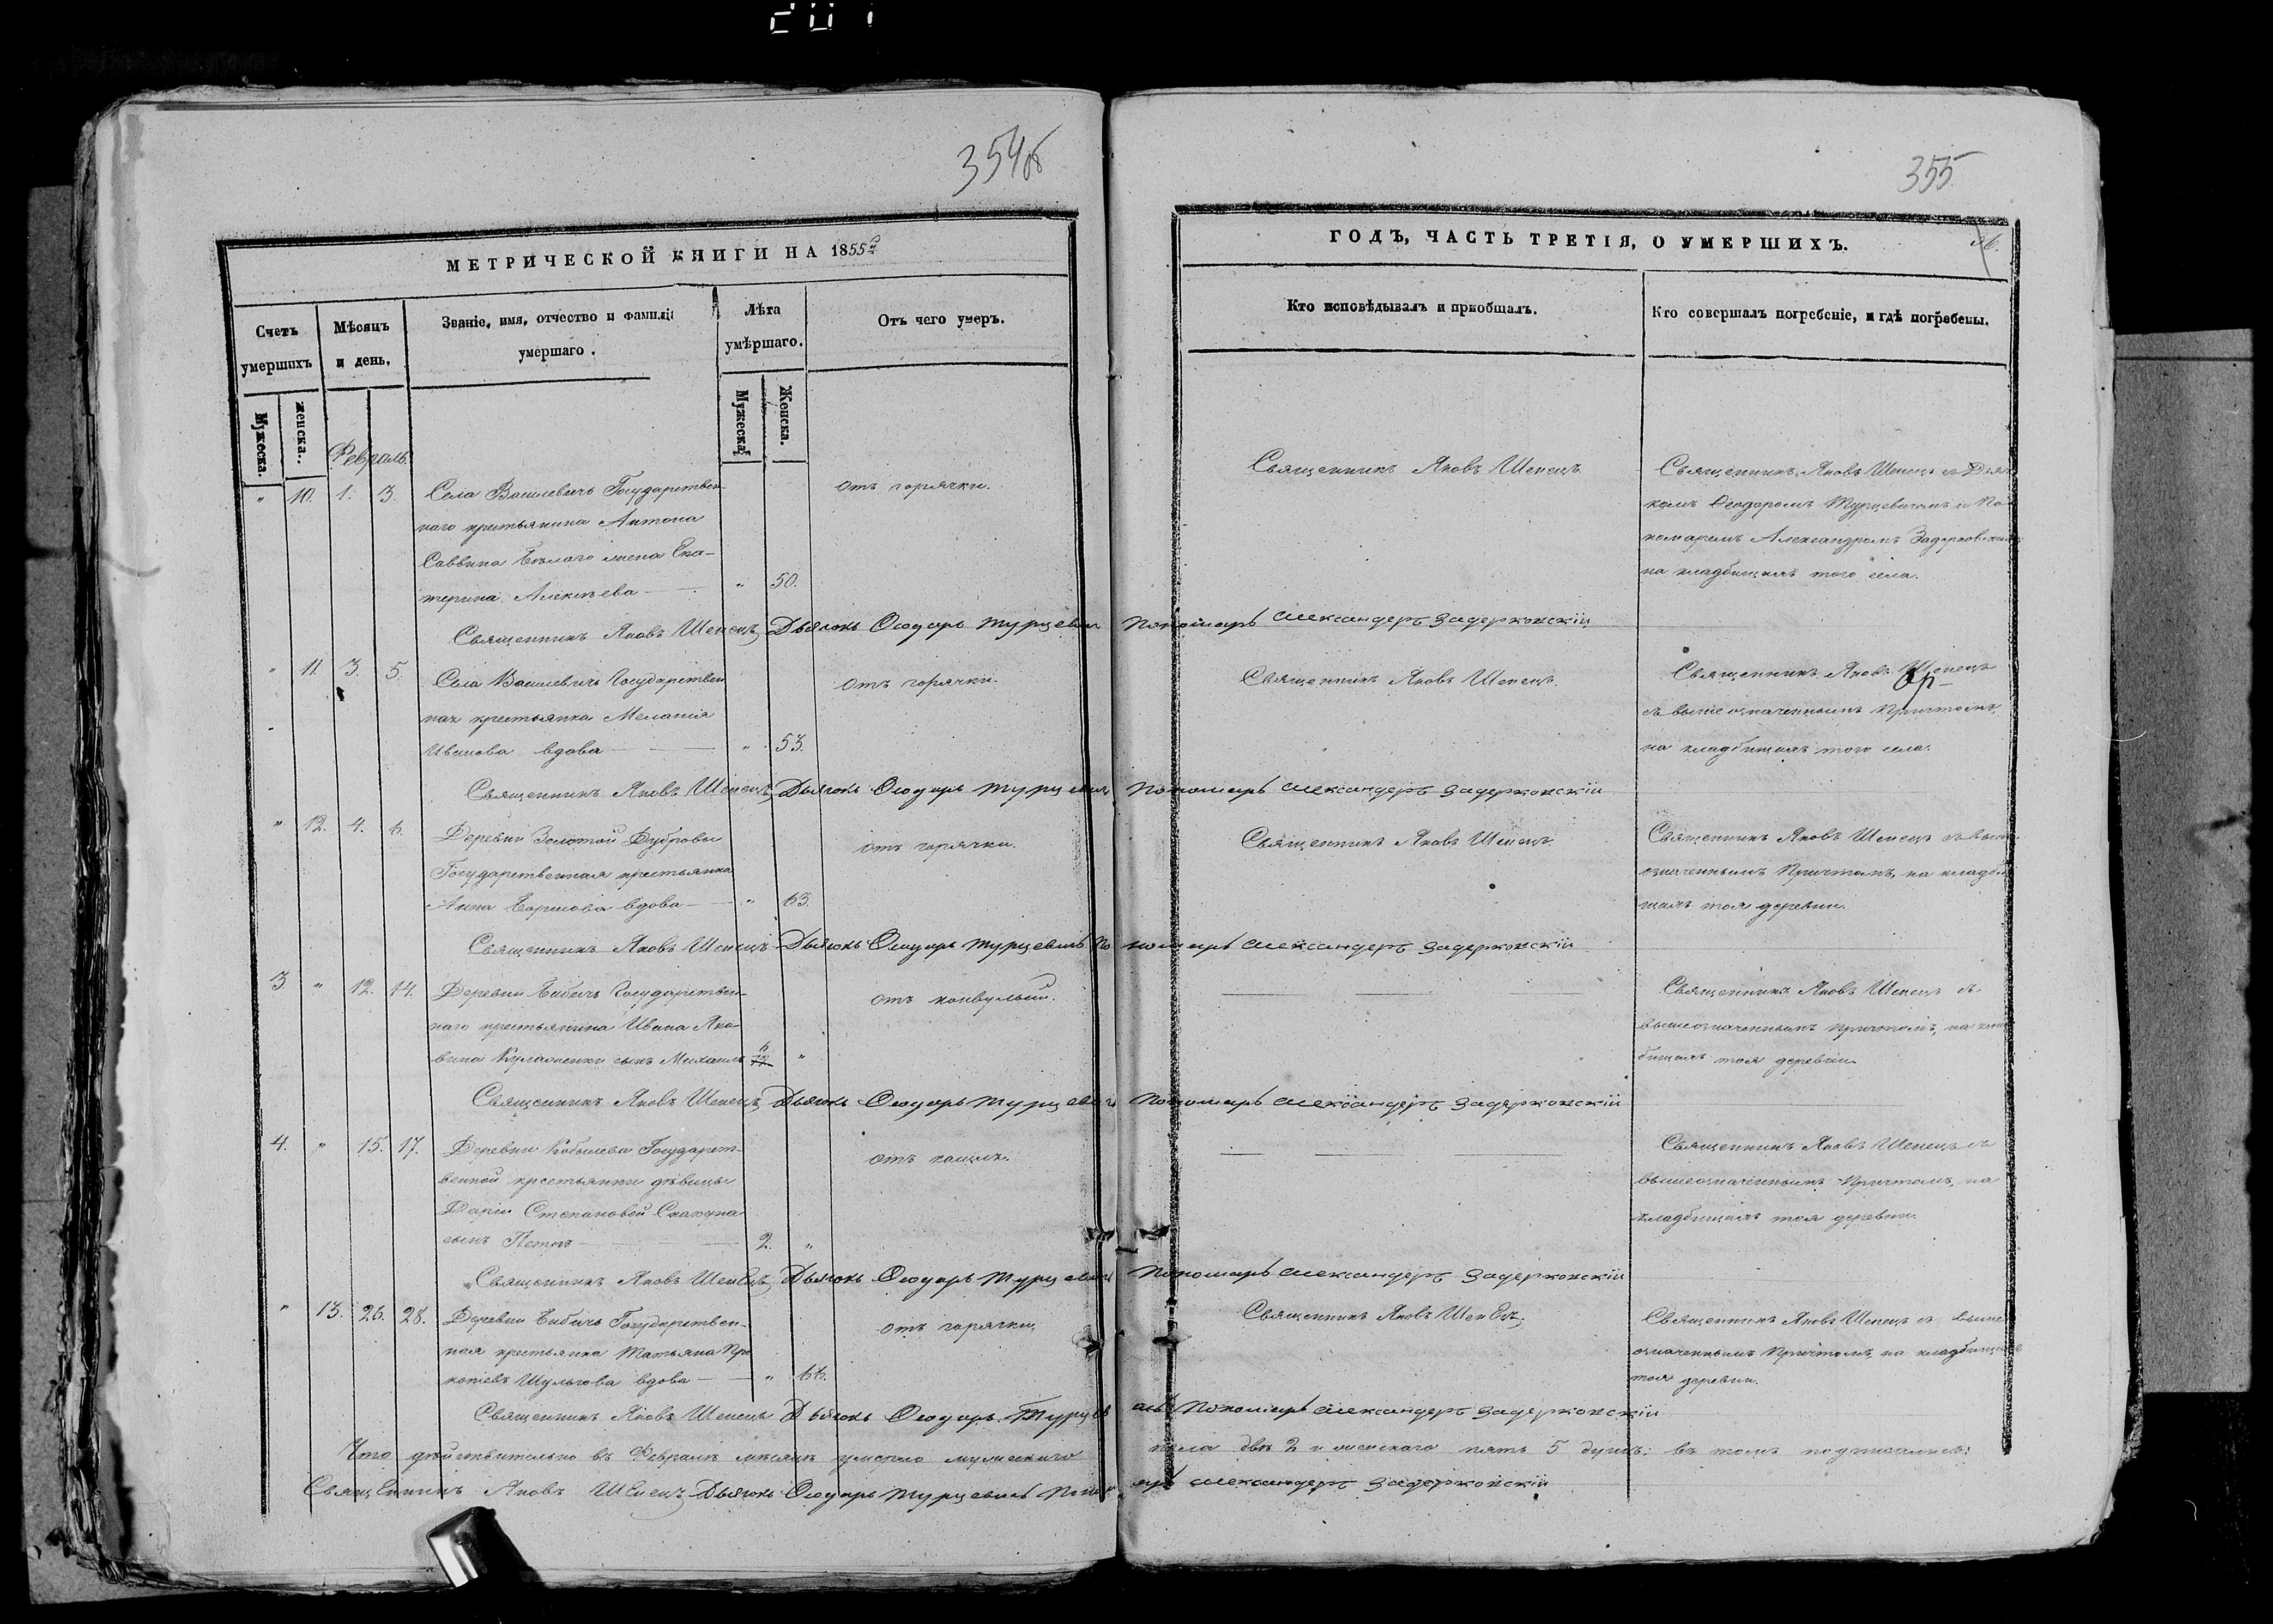 354 об
355
МЕТРИЧЕСКОЙ КНИГИ НА 1855й
ГОДЪ, ЧАСТЬ ТРЕТІЯ, О УМЕРШИХЪ.
Счетъ умершихъ
Мѣсяцъ и день.
Званіе, имя, отчество и фамилія умершаго.
Лѣта умѣршаго.
Отъ чего умеръ.
Кто исповѣдывалъ и пріобщалъ.
Кто совершалъ погребеніе, и гдѣ погребены.
Мужеска.
женска.
Мужеска
Женска.
Февраль.
" 10. 1. 3. Села Василевичъ Государствен-
наго крестьянина Антона
Саввина Бѣлаго жена Ека-
терина Алексѣева — " 50.
отъ горячки.
Священникъ Яковъ Шепецъ
Священникъ Яковъ Шепецъ съ Дьяч
комъ Ѳеодоромъ Турцевичемъ и По
номаремъ Александромъ Задерковскимъ
на кладбищахъ того села.
Священникъ Яковъ Шепецъ Дьячокъ Ѳеодоръ Турцевичъ Пономарь Александеръ Задерковскій
" 11. 3. 5. Села Василевичъ Государствен
ная крестьянка Меланія
Иванова вдова — " 53.
отъ горячки.
Священникъ Яковъ Шепецъ.
Священникъ Яковъ Шепецъ
съ вышеозначеннымъ Причтомъ,
на кладбищахъ того села.
Священникъ Яковъ Шепецъ Дьячокъ Ѳеодоръ Турцевичъ Пономарь Александеръ Задерковскій
" 12. 4. 6. Деревни Золотой Дубровы
Государственная крестьянка
Анна вдова — " 63.
отъ горячки.
Священникъ Яковъ Шепецъ.
Священникъ Яковъ Шепецъ съ выше
означеннымъ Причтомъ, на кладби
щахъ тоя деревни.
Священникъ Яковъ Шепецъ Дьячокъ Ѳеодоръ Турцевичъ Пономарь Александеръ Задерковскій
3 " 12. 14. Деревни Государствен-
наго крестьянина Ивана Яко-
вина сынъ Михаилъ "
отъ конвульсій.
Священникъ Яковъ Шепецъ съ
вышеозначеннымъ Причтомъ, на клад
бищахъ тоя деревни.
Священникъ Яковъ Шепецъ Дьячокъ Ѳеодоръ Турцевичъ Пономарь Александеръ Задерковскій
4. " 15. 17. Деревни Государст-
венной крестьянки дѣвицы
Даріи Степановой Скакуна
сынъ Петръ — 2. "
отъ кашля.
Священникъ Яковъ Шепецъ съ
вышеозначеннымъ Причтомъ, на
кладбищахъ тоя деревни.
Священникъ Яковъ Шепецъ Дьячокъ Ѳеодоръ Турцевичъ Пономарь Александеръ Задерковскій
" 13. 26. 28. Деревни Государствен-
ная крестьянка Татьяна Про
копіева Шульгова вдова — " 66.
отъ горячки.
Священникъ Яковъ Шепецъ.
Священникъ Яковъ Шепецъ съ выше
означеннымъ Причтомъ, на кладбищахъ
тоя деревни.
Священникъ Яковъ Шепецъ Дьячокъ Ѳеодоръ Турцевичъ Пономарь Александеръ Задерковскій
Что дѣйствительно въ Февралѣ мѣсяцѣ умерло мужескаго пола двѣ 2 и женскаго пять 5 душъ; въ томъ подписались:
Священникъ Яковъ Шепецъ Дьячокъ Ѳеодоръ Турцевичъ Пономарь Александеръ Задерковскій